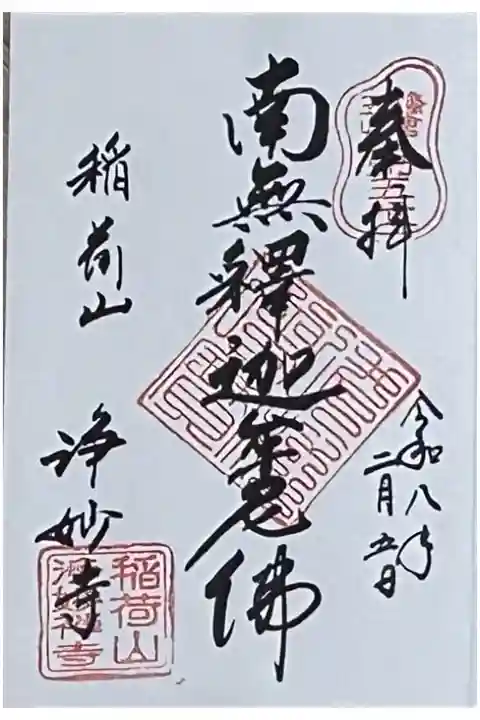 奉拝
令和八年
二月五日
南無釋迦牟尼佛
稲荷山
浄妙寺
稲荷山
浄妙禅寺